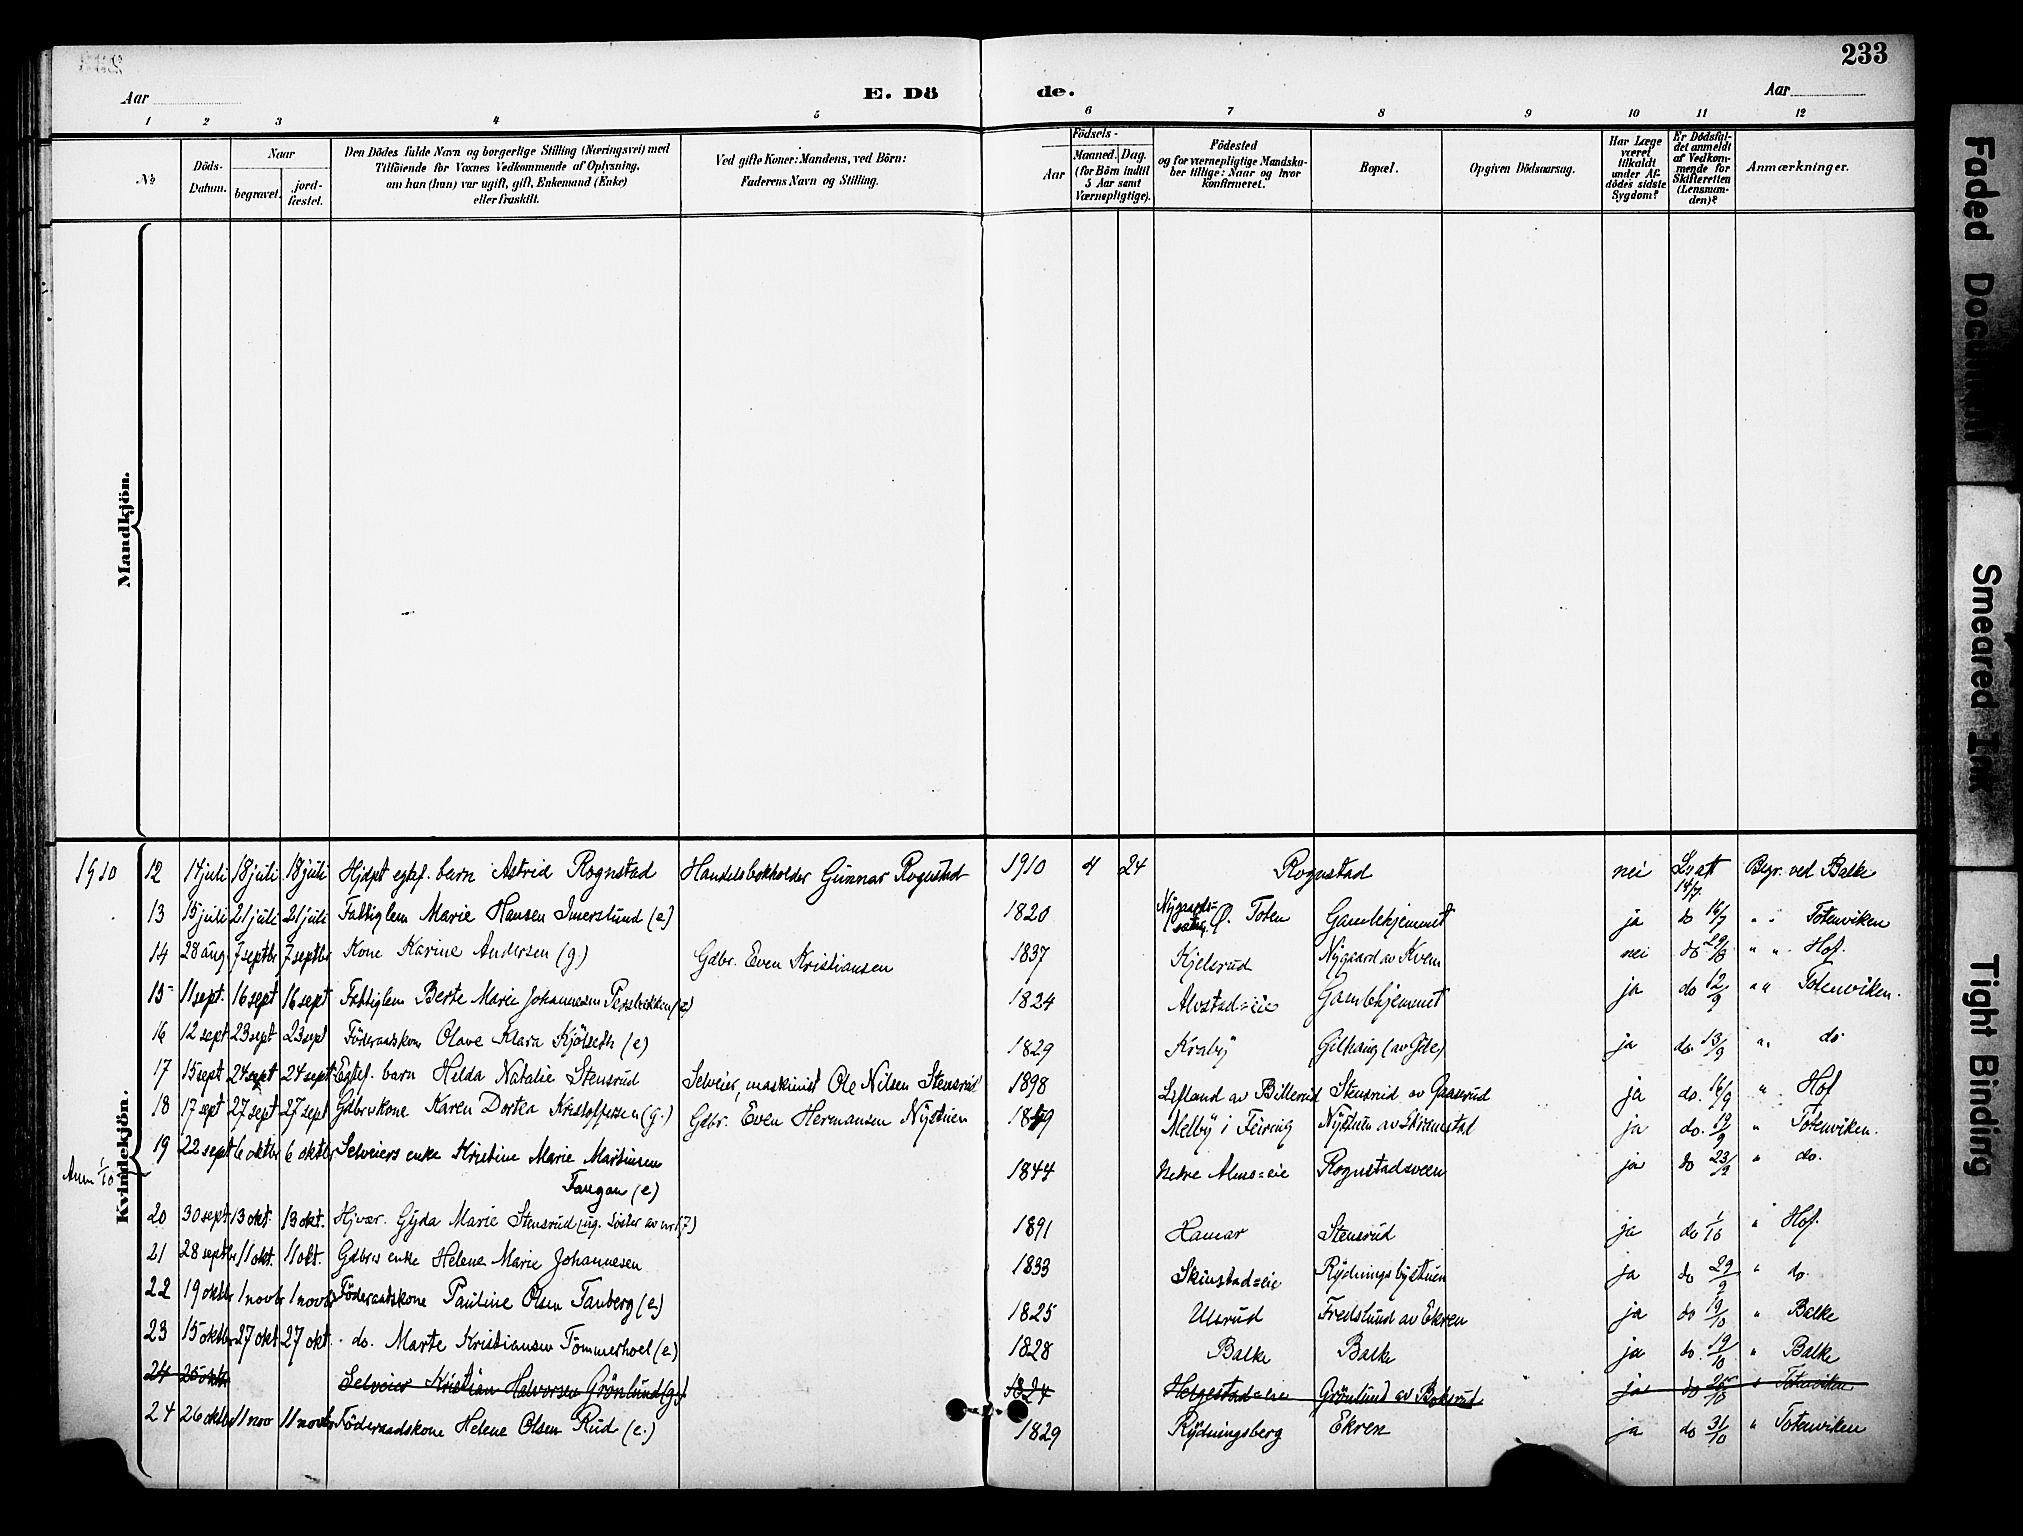 233
Aar
E. Dö de.
Aar
1 2 3 4 5 6 7 8 9 10 11 12
No
Döds-Datum.
Naar
begravet.
jord-fæstet.
Den Dödes fulde Navn og borgerlige Stilling (Næringsvei) med
Tilföiende for Voxnes Vedkommende af Oplysning,
om han (hun) var ugift, gift, Enkemand (Enke)
eller fraskilt.
Ved gifte Koner: Mandens, ved Börn:
Faderens Navn og Stilling.
Födsels-
Aar
Maaned. Dag.
(for Börn indtil
5 Aar samt
Værnepligtige).
Födested
og for værnepligtige Mandska-
ber tillige: Naar og hvor
konfirmeret.
Bopæl.
Opgiven Dödsaarsag.
Har Læge
været
tilkaldt
under Af-
dödes sidste
Sygdom?
Er Dödsfal-
det anmeldt
af Vedkom-
mende for
Skifteretten
(Lensman-
den)?
Anmærkninger.
Mandkjön.
Kvindekjön.
1910 12 14 juli 18 juli 18 juli Hjdpt egtef. barn Astrid Rognstad Handelsbokholder Gunnar Rognstad 1910 4 24 Rognstad nei 14/7 Begr. ved Balke
13 15 juli 21 juli 21 juli Fattiglem Marie Hansen Imerslund (e) 1820 Ø. Toten Gamlehjemmet ja do 16/7 " " Totenviken
14 28 aug 7 septbr 7 septbr Kone Karine Andersen (g.) Gdbr. Even Kristiansen 1837 Kjelsrud Nygaard av Kvem nei do 29/8 " " Hof.
15 11 sept. 16 sept 16 sept Fattiglem Berte Marie Johannesen (e) 1824 Alvstad=eie Gamlehjemmet ja do 12/9 " " Totenviken.
16 12 sept 23 sept 23 sept Föderaadskone Olave Klara Kjölseth (e) 1829 Kraby Gilhaug ja do. 13/9 " " do
17 15 sept 24 sept 24 sept Egtef. barn Hilda Natalie Stensrud Selveier, maskinist Ole Nilsen Stensrud 1898 Lifland av Billerud Stensrud av Gaasrud ja do. 16/9 " Hof
18 17 sept 27 sept 27 sept Gdbrskone Karen Dortea Kristoffersen (g.) Gdbr. Even Hermansen Nystuen Melby i Feiring Nystuen av Skrenestad ja do. 19/9 " Totenviken.
19 22 sept 6 oktbr 6 oktbr Selveiers enke Kristine Marie Martinsen
Fangan (e) 1844 Nedre Alms=eie Rognstadsveen ja do 23/9 " do.
Anm 1/10
20 30 sept 13 okt. 13 okt. Hjvær. Gyda Marie Stensrud (ug. söster av nr 17) 1891 Hamar Stensrud ja do 1/10 " Hof.
21 28 septbr 11 okt. 11 okt. Gdbrs enke Helene Marie Johannesen 1833 Skinstad=eie Rydningsbystuen ja do 29/9 " do.
22 19 oktbr 1 novbr 1 novbr Föderaadskone Pauline Olsen Tanberg (e.) 1825 Ulsrud Fredslund av Ekren ja do 19/10 " Balke
23 15 oktbr 27 okt 27 okt. do. Marte Kristiansen Tömmerhoel (e.) 1828 Balke Balke ja do. 19/10 " Balke
24 25 oktbr Selveier Kristian Halvorsen Grönlund (g.) 1824 Helgestad=eie Grönlund av Boksrud ja do 25/10 " Totenviken
24 26 oktbr 11 nov 11 novbr Föderaadskone Helene Olsen Rud (e.) 1829 Rydningsberg Ekren ja do 31/10 " Totenviken
Faded Document
Smeared Ink
Tight Binding